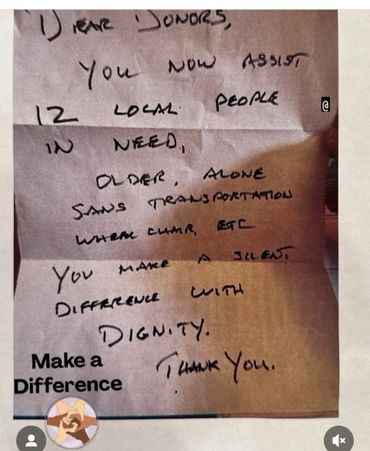 DEAR DONORS,
YOU NOW ASSIST
12 LOCAL PEOPLE
IN NEED,
OLDER, ALONE
SANS TRANSPORTATION
WHEEL CHAIR, ETC
YOU MAKE A SILENT
DIFFERENCE WITH
DIGNITY.
THANK YOU.
Make a
Difference